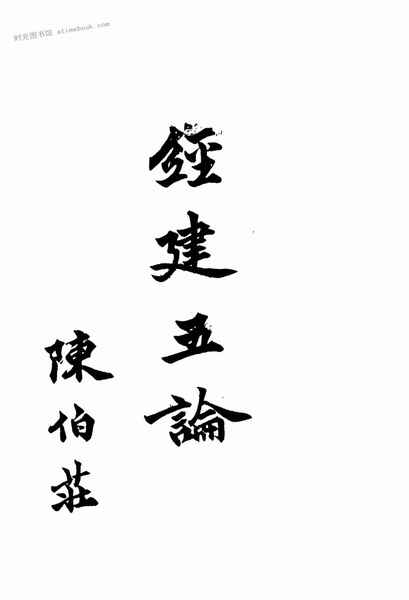 时光图书馆 atimebook.com
經建五論
陳伯莊